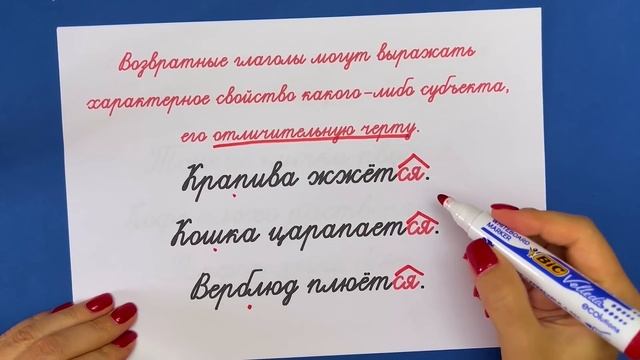 Возвратные глаголы могут выражать
характерное свойство какого-либо субъекта,
его отличительную черту.
Крапива жжётся.
Кошка царапается.
Верблюд плюётся.
WHITEBOARD
MARKER
BIC
Velleda
ecolutions